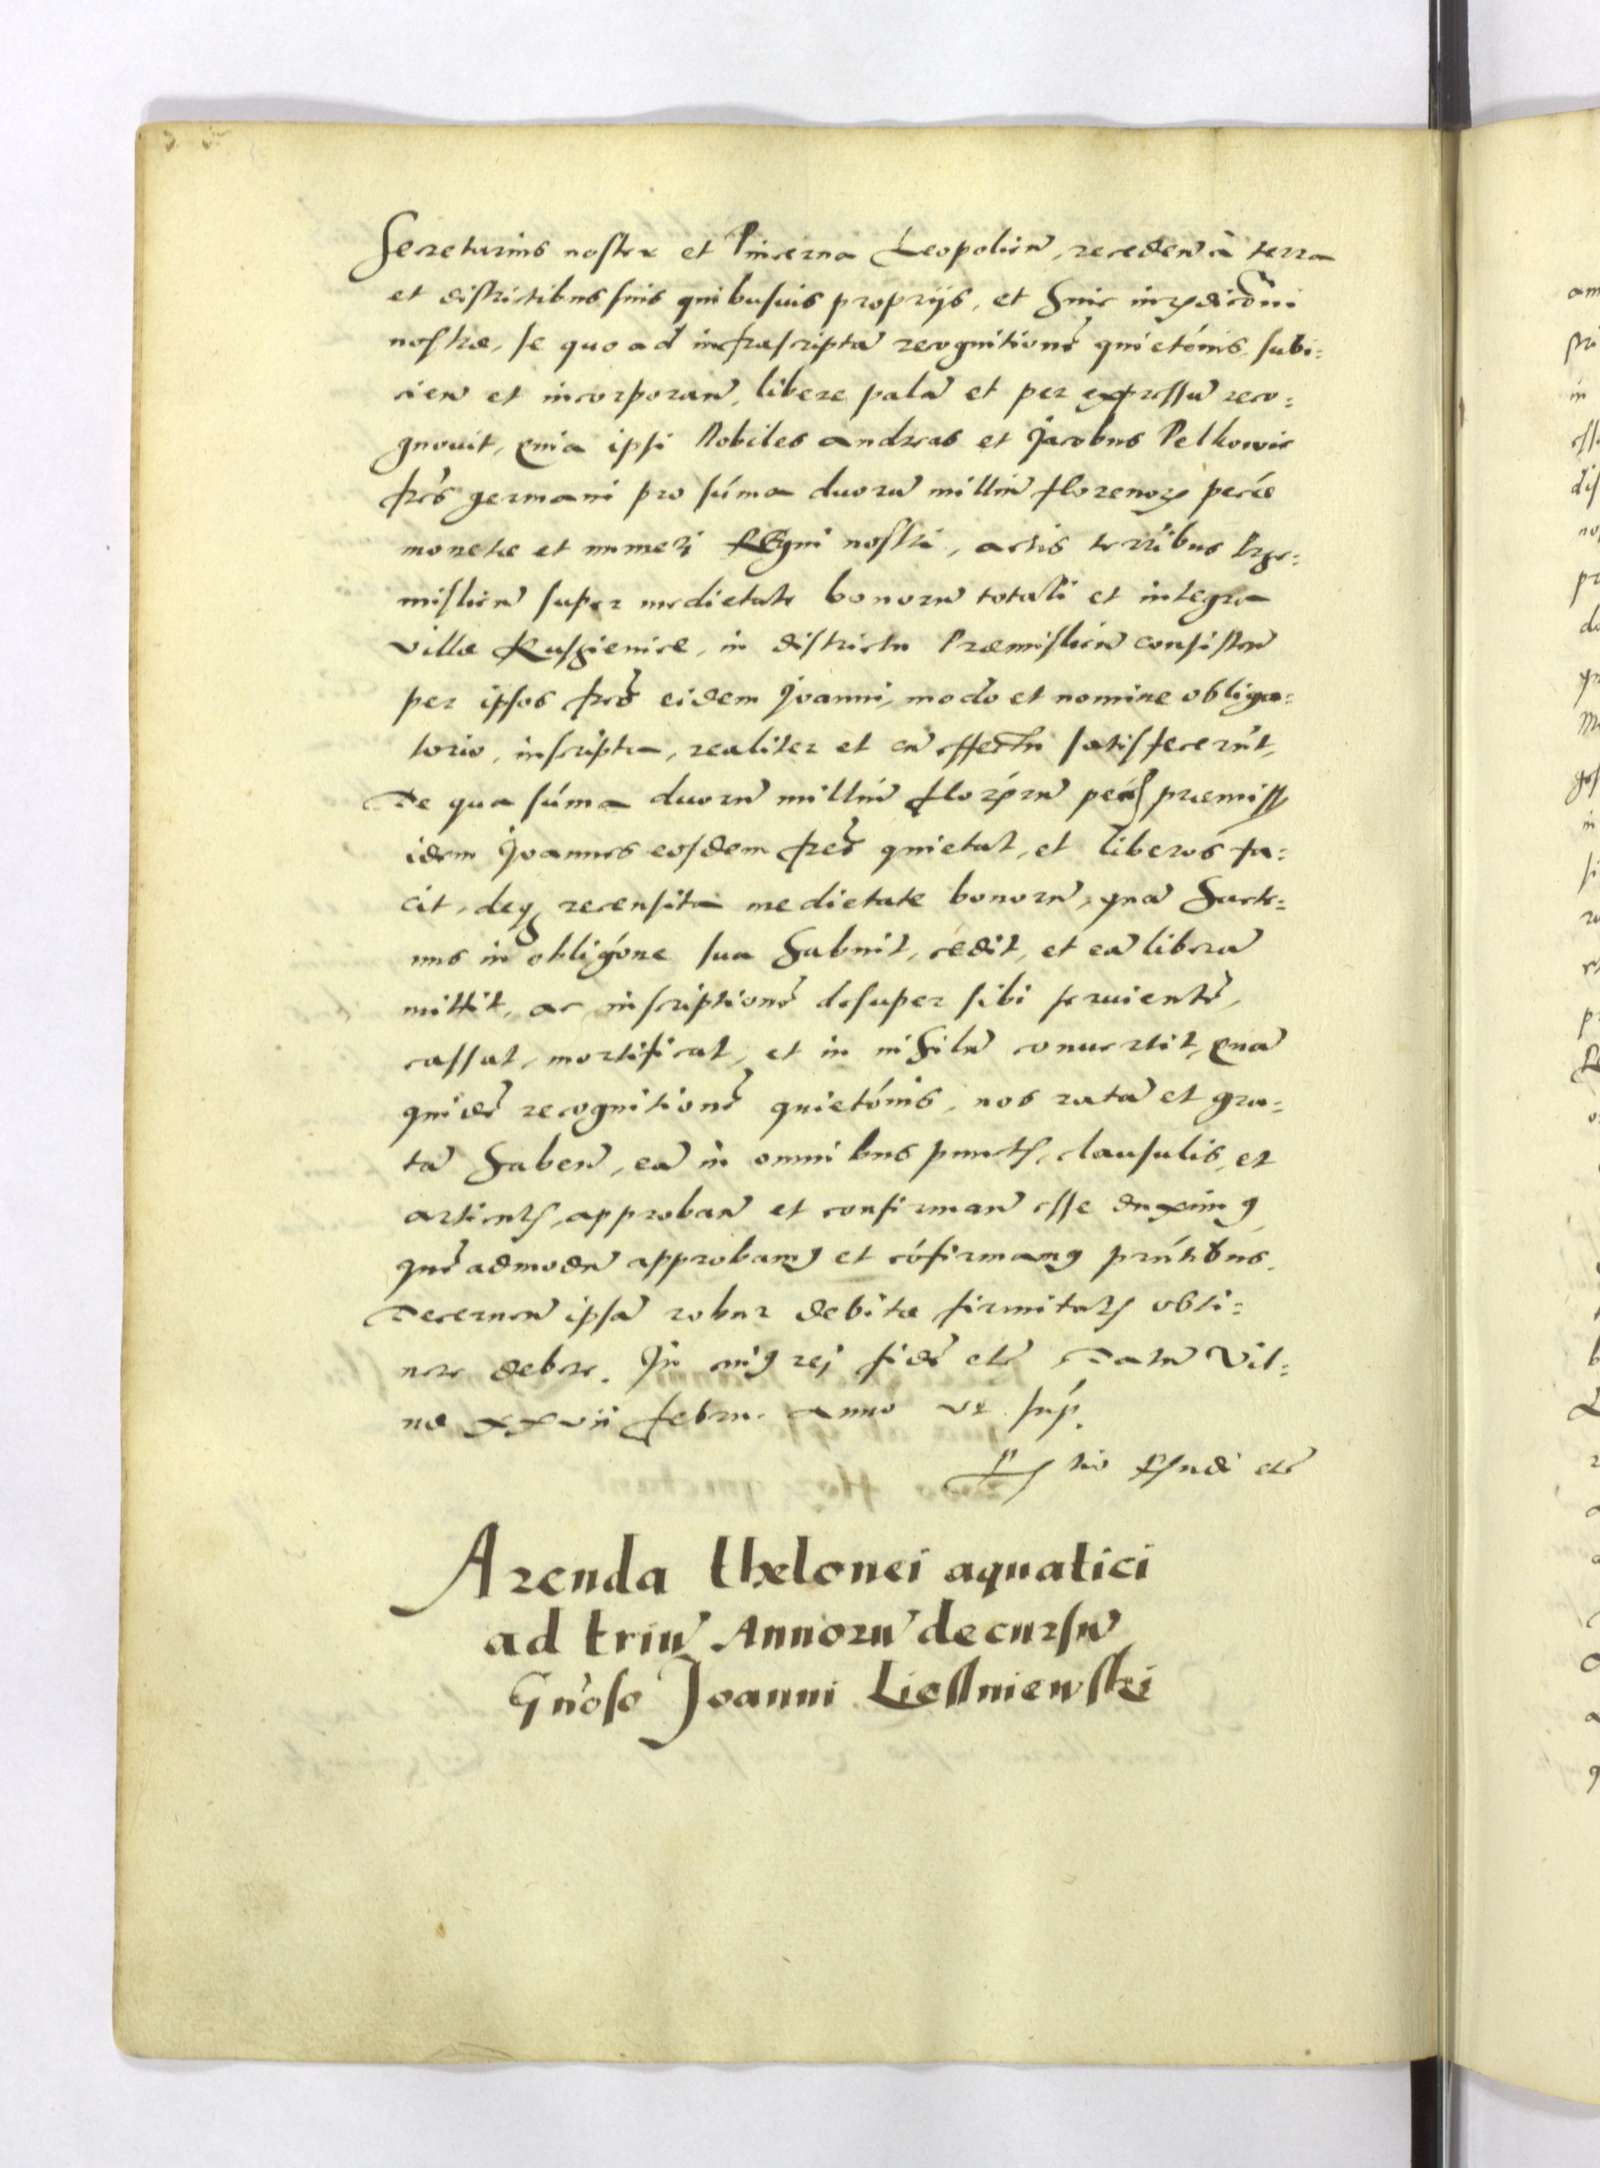 Secretarius noster et Pincerna Leopolien̄, receden̄ à terra
et districtibus suis quibusuis proprijs, et huic inrẏdicōni
nostræ, se quo ad infrascriptā recognitionē quietōnis subi=
cien̄ et incorporan̄, libere palā et per expressū reco=
gnouit, Quia ipsi Nobiles Andreas et Jacobus Pelkowic
frēs germani pro sūma duorū milliū florenoꝝ pecūe
monetæ et numeri Regni nostri, actis terribus Prze=
mislien̄ super medietate bonorū totali et integra
villæ Ruszienice, in districtu Præmislien̄ consisten̄
per ipsos frēs eidem Joanni, modo et nomine obliga=
torio, inscripta, realiter et cū effectu satisfecerūt,
De qua sūma duorū milliū florēnrū pecū præmiss
idem Joannes eosdem frēs quietat, et liberos fa=
cit, deqꝫ recensita medietate bonorū, quā hacte=
nus in obligōne sua habuit, cēdit, et eā liberā
mittit, ac inscriptionē desuper sibi seruientē,
cassat, mortificat, et in nihilū conuertit, Quā
quidē recognitionē quietōnis, nos ratā et gra=
tā haben̄, eā in omnibus punctis, clausulis, et
articulis, approban̄ et confirman̄ esse duximꝰ
quēadmodū approbamꝰ et cōfirmamꝰ prn̄tibus.
Decernen̄ ipsā robur debitæ firmitatis obti=
nere debere. In cuiꝰ rej fidē etc̄ Datū Vil=
næ xxvii Febru. anno vt sup̄.
Rtio Rsndi etc̄
Arenda thelonei aquatici
ad triū Annorū decursū
Gn̄oso Joanni Liessniewski